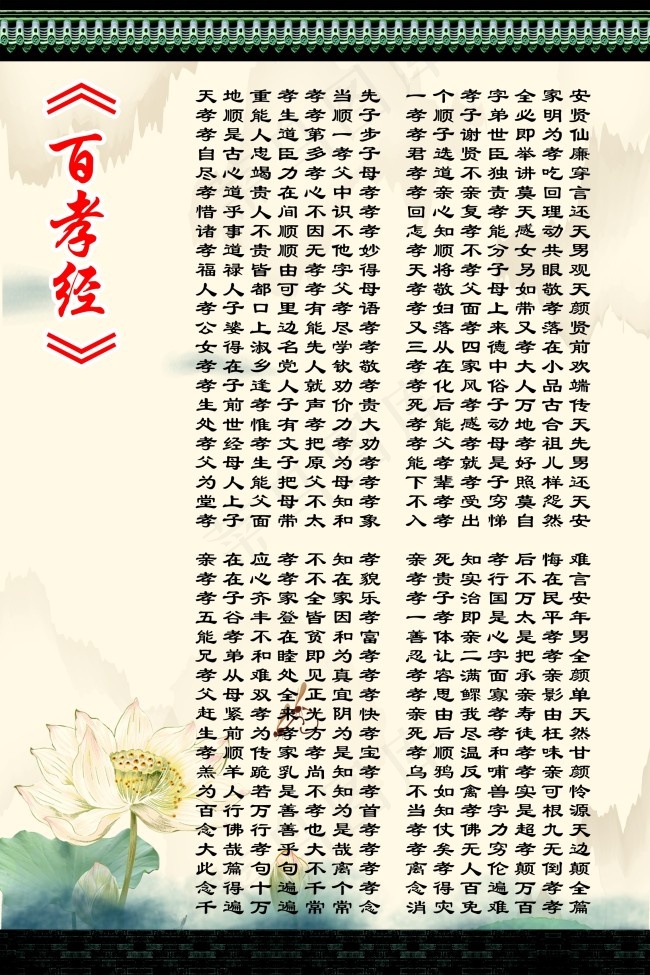 《百孝经》
天地重孝孝当先 一个孝字全家安
孝顺能生孝顺子 孝顺子弟必明贤
孝是人道第一步 孝子谢世即为仙
自古忠臣多孝子 君选贤臣举孝廉
尽心竭力孝父母 孝道不独讲吃穿
孝道贵在心中孝 孝亲亲责莫回言
惜乎人间不识孝 回心复孝天理还
诸事不顺因不孝 怎知孝能感动天
孝道贵顺无他妙 孝顺不分女共男
福禄皆由孝字得 天将孝子另眼观
人人都可孝父母 孝敬父母如敬天
孝子口里有孝语 孝妇面上带孝颜
公婆上边能尽孝 又落孝来又落贤
女得淑名先学孝 三从四德孝在前
孝在乡党人钦敬 孝在家中大小欢
孝子逢人就劝孝 孝化风俗人品端
生前孝子声价贵 死后孝子万古传
处世惟有孝力大 孝能感动地合天
孝经孝文把孝劝 孝父孝母孝祖先
父母生子原为孝 能孝就是好儿男
为人能把父母孝 下辈孝子照样还
堂上父母不知孝 不孝受穷莫怨天
孝子面带太和象 入孝出悌自然安
亲在应孝不知孝 亲死知孝后悔难
孝在心孝不在貌 孝贵实行不在言
孝子齐家全家乐 孝子治国万民安
五谷丰登皆因孝 一孝即是太平年
能孝不在贫和富 善体亲心是孝男
兄弟和睦即为孝 忍让二字把孝全
孝从难处见真孝 孝容满面承亲颜
父母双全正宜孝 孝思鳏寡亲影单
赶紧孝来光阴快 亲由我孝寿由天
生前为孝方为孝 死后尽孝徒枉然
孝顺传家孝是宝 孝顺温和孝味甘
羔羊跪乳尚知孝 乌鸦反哺孝亲颜
为人若是不知孝 不如禽兽实可怜
百行万善孝为首 当知孝字是根源
念佛行善也是孝 孝仗佛力超九天
大哉孝乎大哉孝 孝矣无穷孝无边
此篇句句不离孝 离孝人伦颠倒颠
念得十遍千个孝 念得百遍万孝全
千遍万遍常常念 消灾免难百孝篇